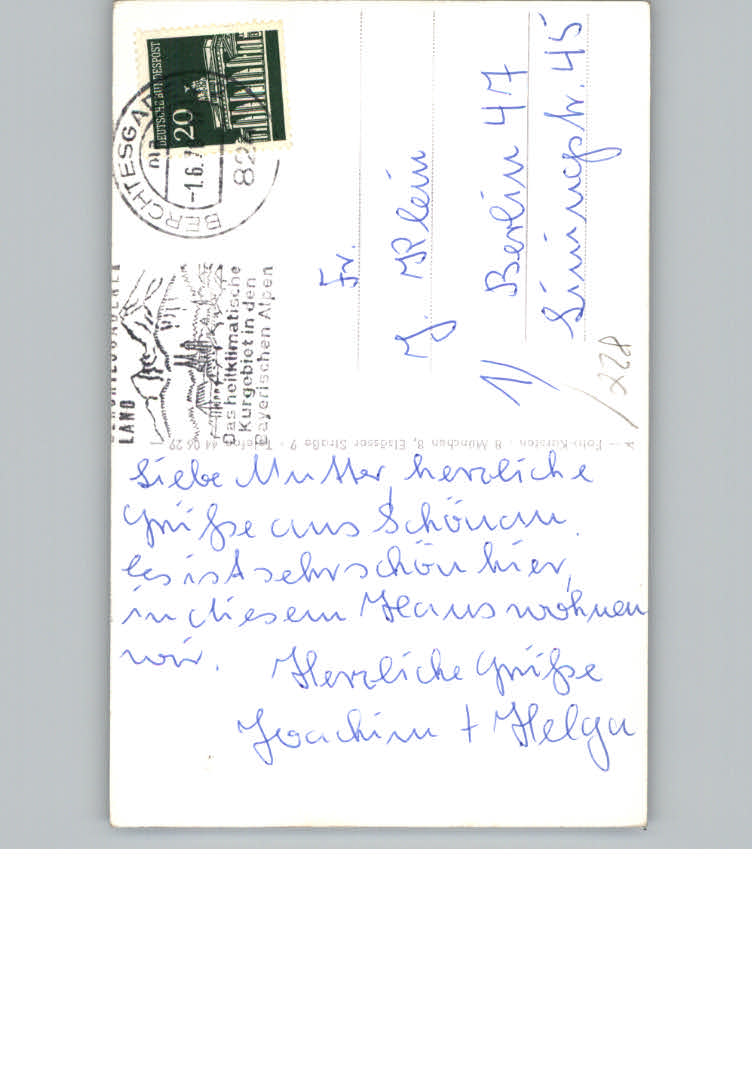 Liebe Mutter, herzliche
Grüße aus Schönau.
Es ist sehr schön hier,
in diesem Haus wohnen
wir. Herzliche Grüße
Joachim + Helga
Fr.
J. Klein
1/ Berlin 47
45
228
DEUTSCHE BUNDESPOST
20
BERCHTESGA
-1.6.7
82
LAND
Das heilklimatische
Kurgebiet in den
Bayerischen Alpen
Foto Kürsten · 8 München 8, Elsässer Straße 9 · Telefon 44 06 29